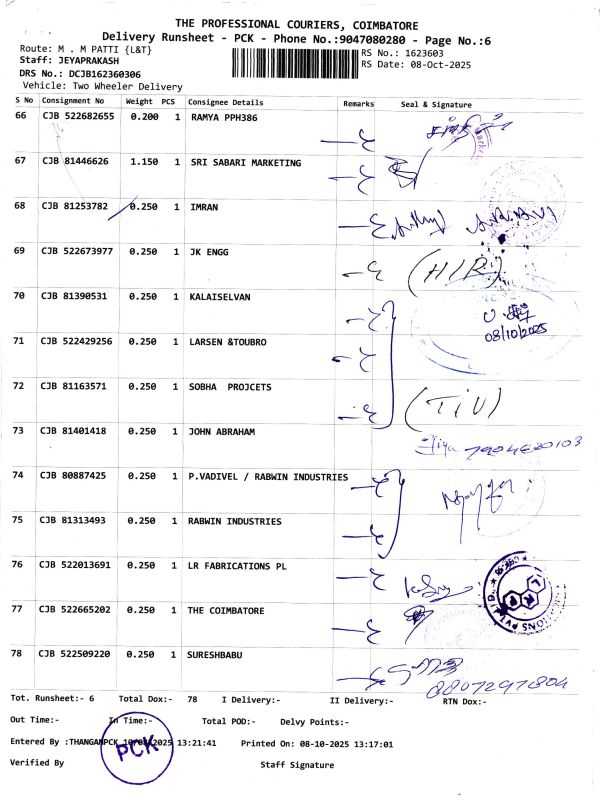 THE PROFESSIONAL COURIERS, COIMBATORE
Delivery Runsheet - PCK - Phone No.:9047080280 - Page No.:6
Route: M . M PATTI {L&T}
RS No.: 1623603
Staff: JEYAPRAKASH
RS Date: 08-Oct-2025
DRS No.: DCJB162360306
Vehicle: Two Wheeler Delivery
S No Consignment No Weight PCS Consignee Details Remarks Seal & Signature
66 CJB 522682655 0.200 1 RAMYA PPH386
67 CJB 81446626 1.150 1 SRI SABARI MARKETING
68 CJB 81253782 0.250 1 IMRAN
69 CJB 522673977 0.250 1 JK ENGG
(H/R)
70 CJB 81390531 0.250 1 KALAISELVAN
08/10/2025
71 CJB 522429256 0.250 1 LARSEN &TOUBRO
72 CJB 81163571 0.250 1 SOBHA PROJCETS
(TiU)
73 CJB 81401418 0.250 1 JOHN ABRAHAM
74 CJB 80887425 0.250 1 P.VADIVEL / RABWIN INDUSTRIES
75 CJB 81313493 0.250 1 RABWIN INDUSTRIES
76 CJB 522013691 0.250 1 LR FABRICATIONS PL
77 CJB 522665202 0.250 1 THE COIMBATORE
78 CJB 522509220 0.250 1 SURESHBABU
8807297804
Tot. Runsheet:- 6 Total Dox:- 78 I Delivery:- II Delivery:- RTN Dox:-
Out Time:- In Time:- Total POD:- Delvy Points:-
Entered By :THANGAMPCK 13:21:41 Printed On: 08-10-2025 13:17:01
PCK
Verified By Staff Signature